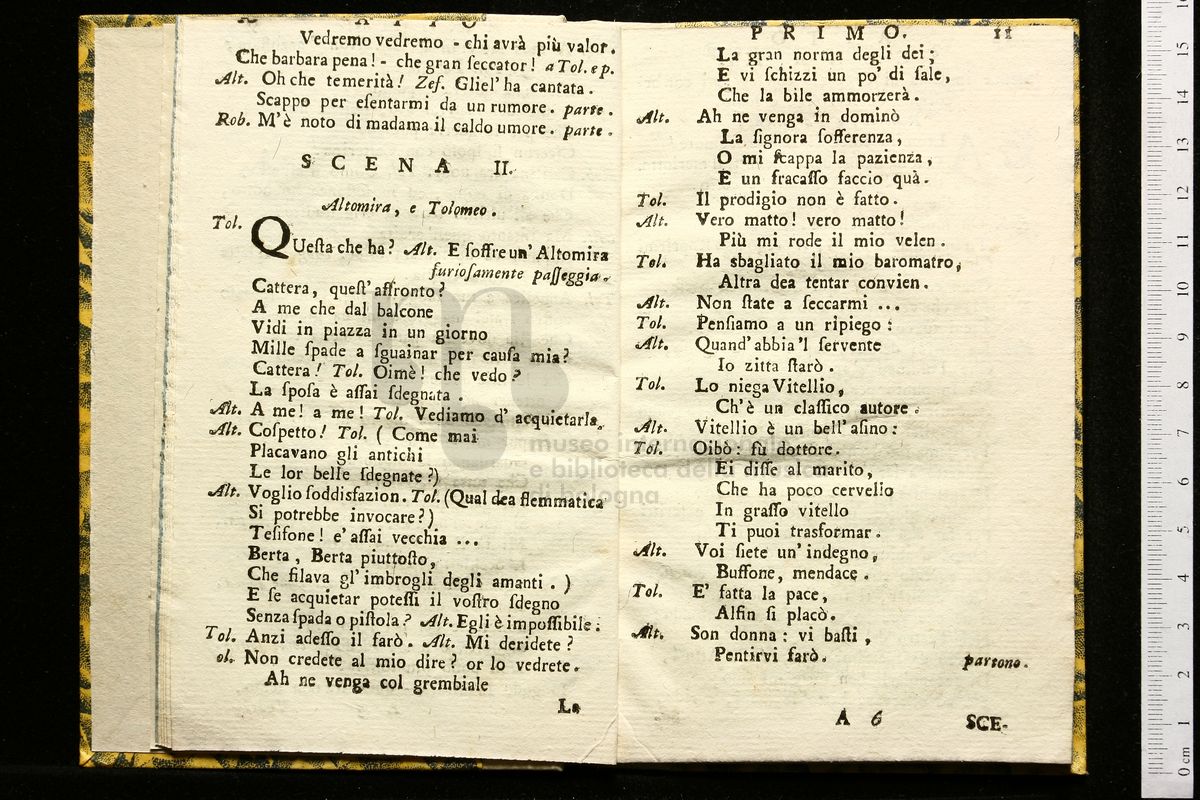 ATTO
Vedremo vedremo - chi avrà più valor.
Che barbara pena! - che gran ſeccator! a Tol. e p.
Alt. Oh che temerità! Zef. Gliel' ha cantata.
Scappo per eſentarmi da un rumore. parte.
Rob. M'è noto di madama il caldo umore. parte.
SCENA II.
Altomira, e Tolomeo.
Tol. QUeſta che ha? Alt. E ſoffre un' Altomira
furioſamente paſſeggia.
Cattera, queſt' affronto?
A me che dal balcone
Vidi in piazza in un giorno
Mille ſpade a ſguainar per cauſa mia?
Cattera! Tol. Oimè! che vedo?
La ſpoſa è aſſai ſdegnata.
Alt. A me! a me! Tol. Vediamo d' acquietarla.
Alt. Coſpetto! Tol. ( Come mai
Placavano gli antichi
Le lor belle ſdegnate?)
Alt. Voglio ſoddisfazion. Tol. (Qual dea flemmatica
Si potrebbe invocare?)
Teſifone! e' aſſai vecchia ...
Berta, Berta piuttoſto,
Che filava gl' imbrogli degli amanti. )
E ſe acquietar poteſſi il voſtro ſdegno
Senza ſpada o piſtola? Alt. Egli è impoſſibile.
Tol. Anzi adeſſo il farò. Alt. Mi deridete?
ol. Non credete al mio dire? or lo vedrete.
Ah ne venga col grembiale
La
PRIMO. 11
La gran norma degli dei;
E vi ſchizzi un po' di ſale,
Che la bile ammorzerà.
Alt. Ah ne venga in dominò
La ſignora ſofferenza,
O mi ſcappa la pazienza,
E un fracaſſo faccio quà.
Tol. Il prodigio non è fatto.
Alt. Vero matto! vero matto!
Più mi rode il mio velen.
Tol. Ha sbagliato il mio baromatro,
Altra dea tentar convien.
Alt. Non ſtate a ſeccarmi ...
Tol. Penſiamo a un ripiego:
Alt. Quand' abbia 'l ſervente
Io zitta ſtarò.
Tol. Lo niega Vitellio,
Ch'è un claſſico autore.
Alt. Vitellio è un bell' aſino:
Tol. Oibò: fù dottore.
Ei diſſe al marito,
Che ha poco cervello
In graſſo vitello
Ti puoi trasformar.
Alt. Voi ſiete un' indegno,
Buffone, mendace.
Tol. E' fatta la pace,
Alfin ſi placò.
Alt. Son donna: vi baſti,
Pentirvi farò. partono.
A 6 SCE-
museo internazionale
e biblioteca della
di bologna
0 cm 1 2 3 4 5 6 7 8 9 10 11 12 13 14 15